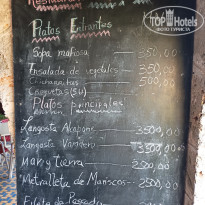 Restaurant
TOP Hotels
ФОТО ТУРИСТА
Platos Entrantes
Sopa mariosa 350,00
Ensalada de vegetales 350,00
Chicharritas 500,00
Croquetas (5U)
Platos principales
Langosta Al capone 3500,00
Langosta Vandero 3300,00
Mar y Tierra 2500,00
Metralleta de Mariscos 2500,00
Filete de Pescado